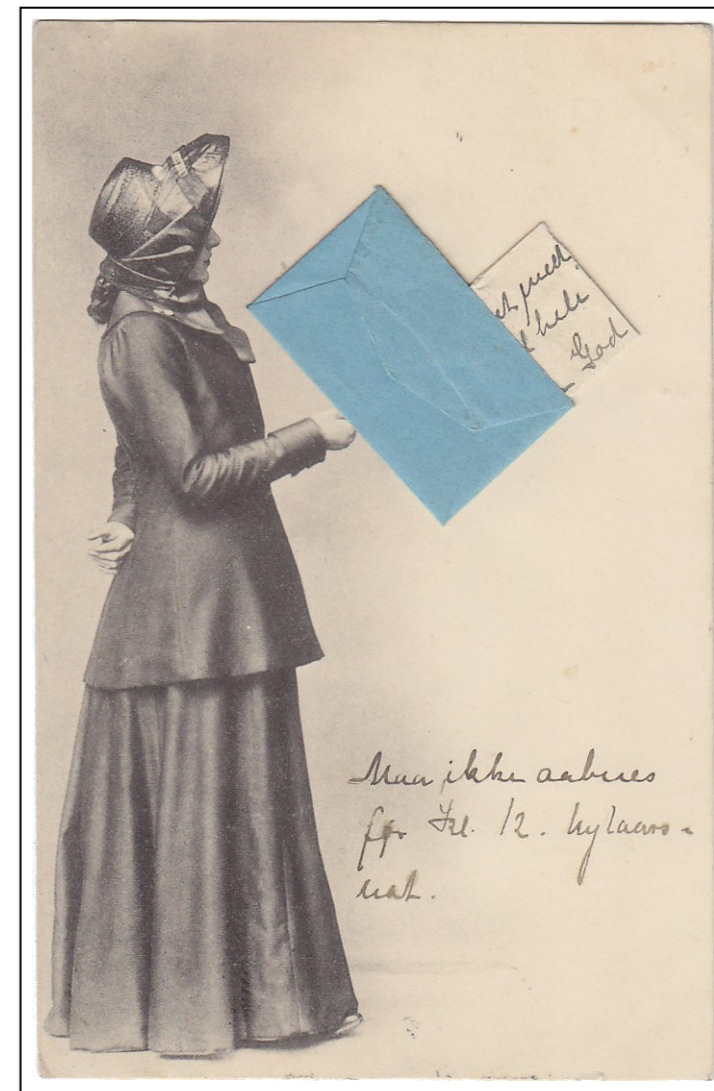 med
hele
God
Maa ikke aabnes
før Kl. 12. Nytaars-
nat.